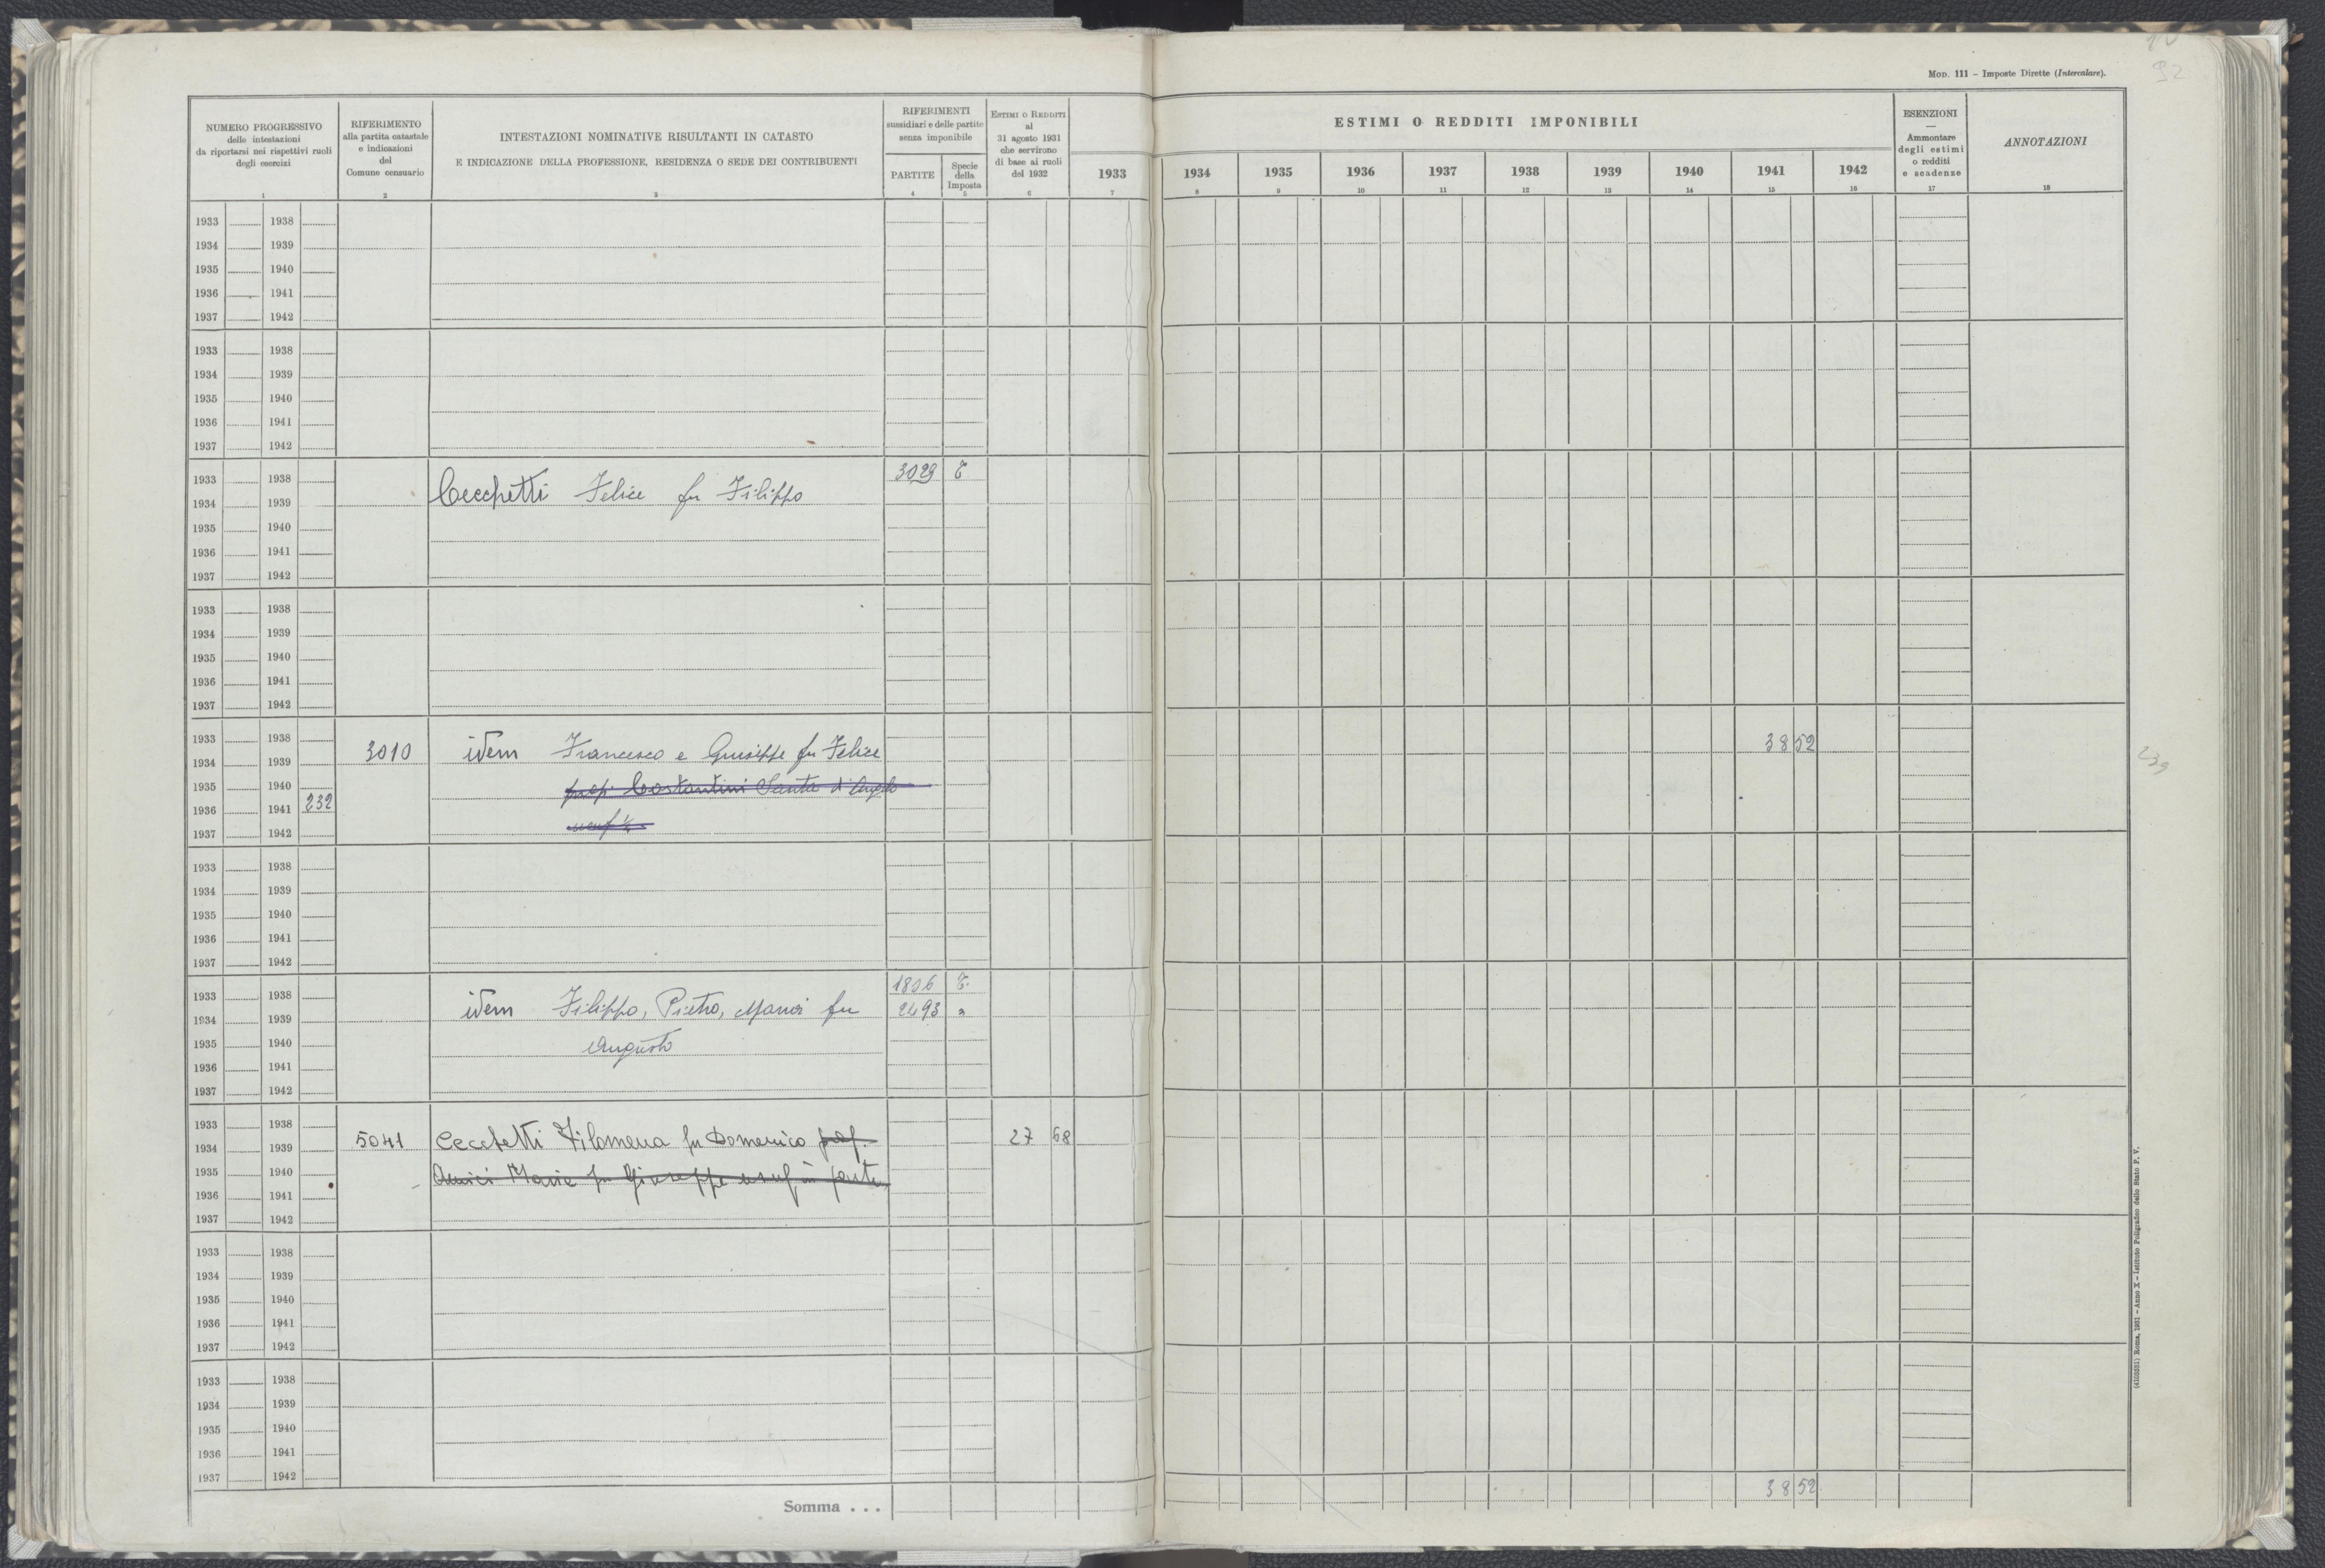 MOD. 111 - Imposte Dirette (Intercalare).
92
NUMERO PROGRESSIVO
delle intestazioni
da riportarsi nei rispettivi ruoli
degli esercizi
1
RIFERIMENTO
alla partita catastale
e indicazioni
del
Comune censuario
2
INTESTAZIONI NOMINATIVE RISULTANTI IN CATASTO
E INDICAZIONE DELLA PROFESSIONE, RESIDENZA O SEDE DEI CONTRIBUENTI
3
RIFERIMENTI
sussidiari e delle partite
senza imponibile
PARTITE
4
Specie
della
Imposta
5
ESTIMI O REDDITI
al
31 agosto 1931
che servirono
di base ai ruoli
del 1932
6
ESTIMI O REDDITI IMPONIBILI
1933 1934 1935 1936 1937 1938 1939 1940 1941 1942
7 8 9 10 11 12 13 14 15 16
ESENZIONI
—
Ammontare
degli estimi
o redditi
e scadenze
17
ANNOTAZIONI
18
1933 1938
1934 1939
1935 1940
1936 1941
1937 1942
1933 1938
1934 1939
1935 1940
1936 1941
1937 1942
1933 1938 3029 T
1934 1939 Cecchetti Felice fu Filippo
1935 1940
1936 1941
1937 1942
1933 1938
1934 1939
1935 1940
1936 1941
1937 1942
1933 1938 38 52
1934 1939 3010 idem Francesco e Giuseppe fu Felice
1935 1940 prop: Costantini Santa di Angelo
1936 1941 232
1937 1942 usuf ½
239
1933 1938
1934 1939
1935 1940
1936 1941
1937 1942
1806 T.
1933 1938
1934 1939 idem Filippo, Pietro, Maria fu 2493 "
1935 1940 Augusto
1936 1941
1937 1942
1933 1938
1934 1939 5041 Cecchetti Filomena fu Domenico prop. 27 68
1935 1940 Amici Maria fu Giuseppe usuf in parte
1936 1941
1937 1942
1933 1938
1934 1939
1935 1940
1936 1941
1937 1942
1933 1938
1934 1939
1935 1940
1936 1941
1937 1942
Somma . . . 38 52
(4103531) Roma, 1931 - Anno X - Istituto Poligrafico dello Stato P. V.